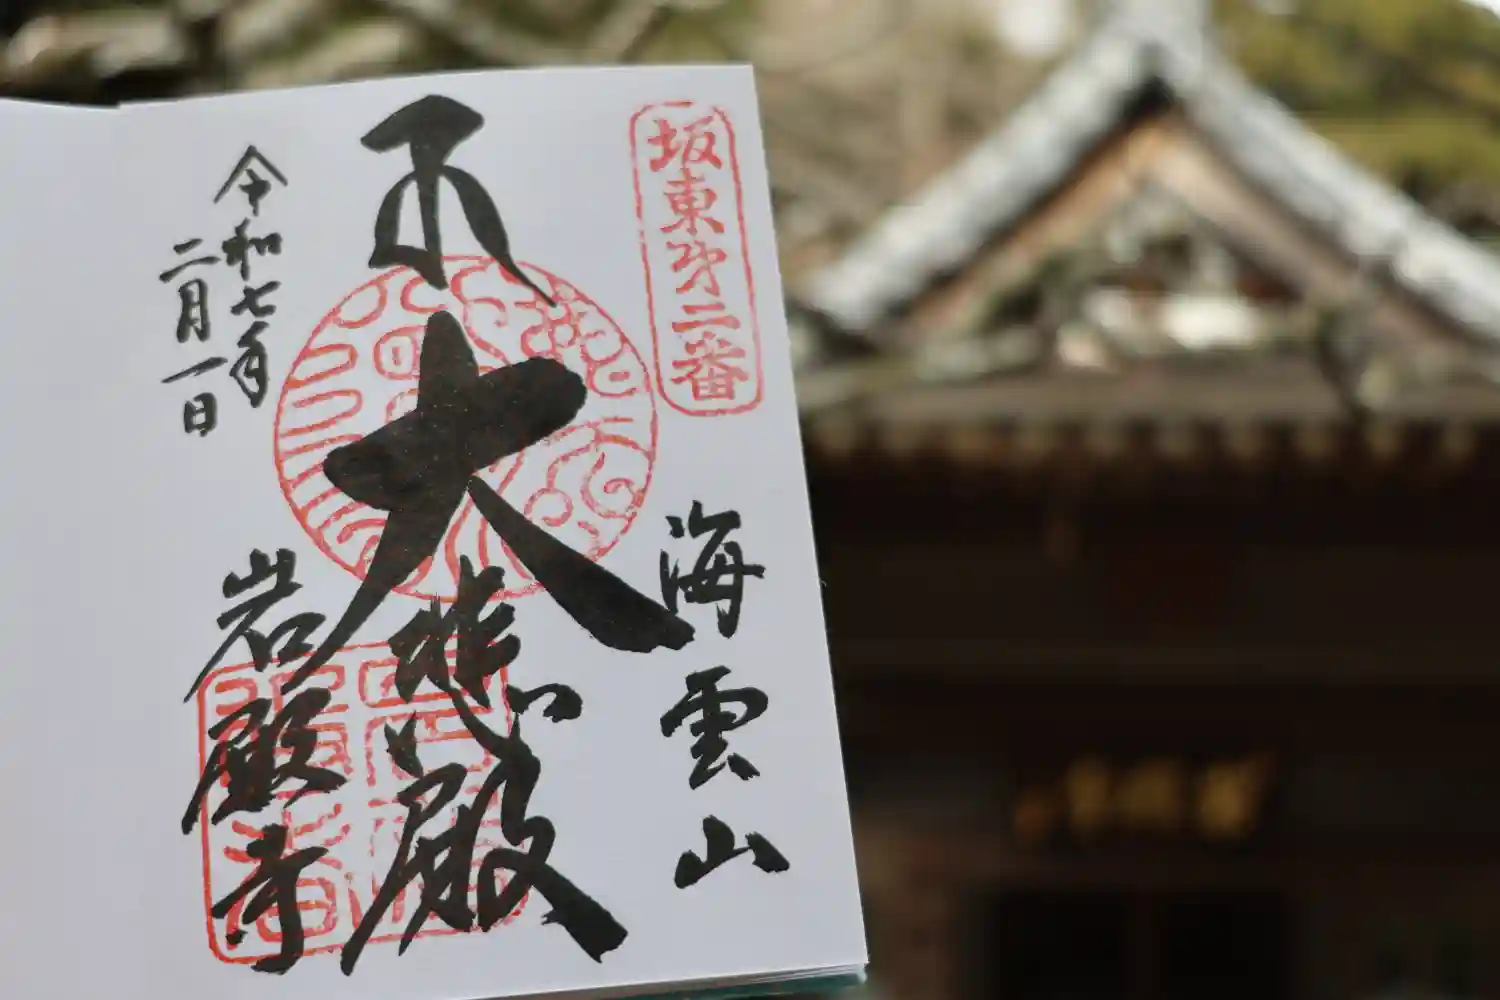 坂東第二番
海雲山
大悲殿
岩殿寺
令和七年
二月一日